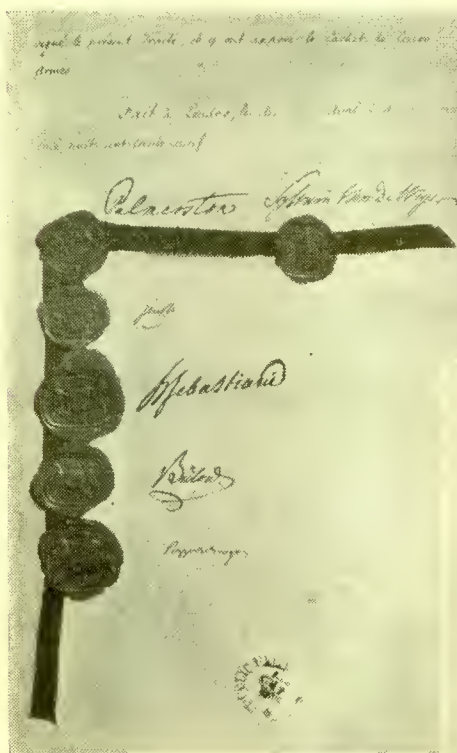 signé le présent Traité, et y ont apposé le Cachet de leurs
Armes.
Fait à Londres, le
mil huit cent trente-neuf
Palmerston Sylvain Van de Weyer
Senfft
H Sebastiani
Bülow
Pozzo di Borgo